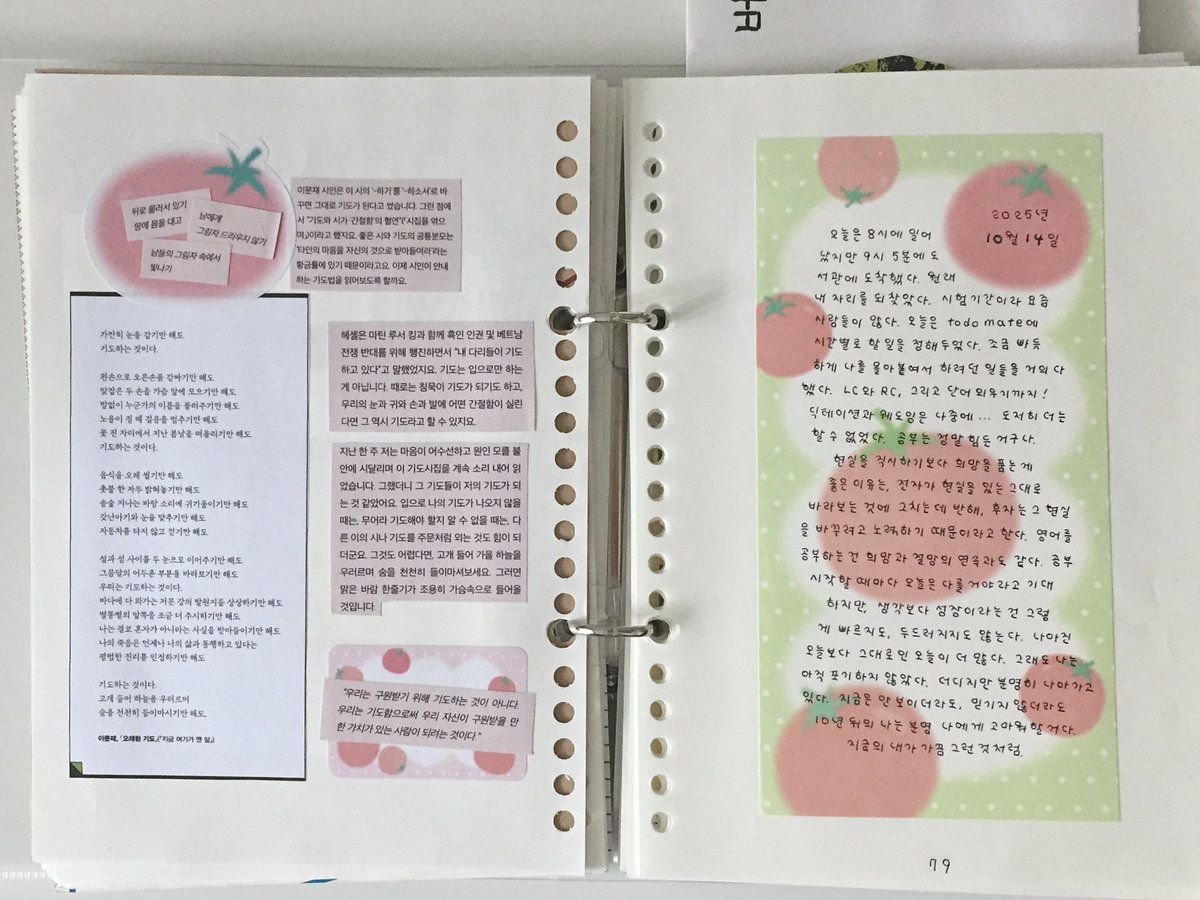 뒤로 물러서 있기
땅에 몸을 대고
남에게
그림자 드리우지 않기
남들의 그림자 속에서
빛나기
이문재 시인은 이 시의 '-하기'를 '-하소서'로 바
꾸면 그대로 기도가 된다고 썼습니다. 그런 점에
서 "기도와 시가 '간절함'의 혈연"(『시집을 엮으
며』)이라고 했지요. 좋은 시와 기도의 공통분모는
'타인의 마음을 자신의 것으로 받아들여라'라는
황금률에 있기 때문이라고요. 이제 시인이 안내
하는 기도법을 읽어보도록 할까요.
가만히 눈을 감기만 해도
기도하는 것이다.
왼손으로 오른손을 감싸기만 해도
맞잡은 두 손을 가슴 앞에 모으기만 해도
말없이 누군가의 이름을 불러주기만 해도
노을이 질 때 걸음을 멈추기만 해도
꽃 진 자리에서 지난 봄날을 떠올리기만 해도
기도하는 것이다.
음식을 오래 씹기만 해도
촛불 한 자루 밝혀놓기만 해도
솔숲 지나는 바람 소리에 귀기울이기만 해도
갓난아기와 눈을 맞추기만 해도
자동차를 타지 않고 걷기만 해도
섬과 섬 사이를 두 눈으로 이어주기만 해도
그믐달의 어두운 부분을 바라보기만 해도
우리는 기도하는 것이다.
바다에 다 와가는 저문 강의 발원지를 상상하기만 해도
별똥별의 앞쪽을 조금 더 주시하기만 해도
나는 결코 혼자가 아니라는 사실을 받아들이기만 해도
나의 죽음은 언제나 나의 삶과 동행하고 있다는
평범한 진리를 인정하기만 해도
기도하는 것이다.
고개 들어 하늘을 우러르며
숨을 천천히 들이마시기만 해도.
이문재, 「오래된 기도」(『지금 여기가 맨 앞』)
헤셸은 마틴 루서 킹과 함께 흑인 인권 및 베트남
전쟁 반대를 위해 행진하면서 "내 다리들이 기도
하고 있다"고 말했었지요. 기도는 입으로만 하는
게 아닙니다. 때로는 침묵이 기도가 되기도 하고,
우리의 눈과 귀와 손과 발에 어떤 간절함이 실린
다면 그 역시 기도라고 할 수 있지요.
지난 한 주 저는 마음이 어수선하고 원인 모를 불
안에 시달리며 이 기도시집을 계속 소리 내어 읽
었습니다. 그랬더니 그 기도들이 저의 기도가 되
는 것 같았어요. 입으로 나의 기도가 나오지 않을
때는, 무어라 기도해야 할지 알 수 없을 때는, 다
른 이의 시나 기도를 주문처럼 외는 것도 힘이 되
더군요. 그것도 어렵다면, 고개 들어 가을 하늘을
우러르며 숨을 천천히 들이마셔보세요. 그러면
맑은 바람 한줄기가 조용히 가슴속으로 들어올
것입니다.
"우리는 구원받기 위해 기도하는 것이 아니다.
우리는 기도함으로써 우리 자신이 구원받을 만
한 가치가 있는 사람이 되려는 것이다."
2025년
10월 14일
오늘은 8시에 일어
났지만 9시 5분에 도
서관에 도착했다. 원래
내 자리를 되찾았다. 시험기간이라 요즘
사람들이 많다. 오늘은 todo mate에
시간별로 할 일을 정해두었다. 조금 빠듯
하게 나를 몰아붙여서 하려던 일들을 거의 다
했다. LC와 RC, 그리고 단어 외우기까지!
딕테이션과 쉐도잉은 나중에... 도저히 더는
할 수 없었다. 공부는 정말 힘든 거구나.
현실을 직시하기보다 희망을 품는 게
좋은 이유는, 전자가 현실을 있는 그대로
바라보는 것에 그치는 데 반해, 후자는 그 현실
을 바꾸려고 노력하기 때문이라고 한다. 영어를
공부하는 건 희망과 절망의 연속과도 같다. 공부
시작할 때마다 오늘은 다를 거야라고 기대
하지만, 생각보다 성장이라는 건 그렇
게 빠르지도, 두드러지지도 않는다. 나아진
오늘보다 그대로인 오늘이 더 많다. 그래도 나는
아직 포기하지 않았다. 더디지만 분명히 나아가고
있다. 지금은 안 보이더라도, 믿기지 않더라도
10년 뒤의 나는 분명 나에게 고마워할 거다.
지금의 내가 가끔 그런 것처럼.
79